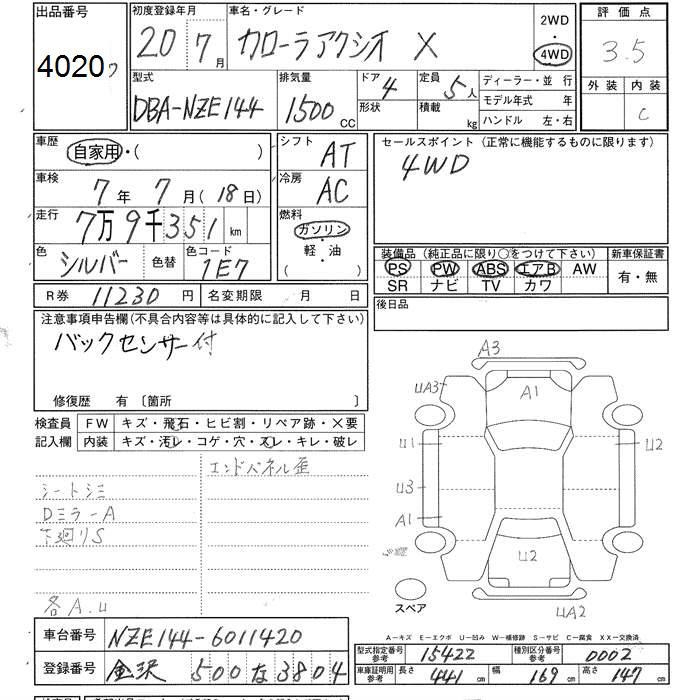 出品番号 初度登録年月 車名・グレード 2WD・4WD 評価点
4020 20年7月 カローラアクシオ X 3.5
型式 排気量 ドア 4 定員 5人 ディーラー・並行 外装 内装
DBA-NZE144 1500CC 形状 積載 kg モデル年式 年 C
ハンドル 左・右
車歴 自家用・( ) シフト AT セールスポイント(正常に機能するものに限ります)
車検 7年7月(18日) 冷房 AC 4WD
走行 7万9千351km 燃料 ガソリン・軽・油 ( )
色 シルバー 色替 色コード 1E7 装備品(純正品に限り○をつけて下さい) 新車保証書
PS PW ABS エアB AW 有・無
SR ナビ TV カワ
R券 11230円 名変期限 月 日 後日品
注意事項申告欄(不具合内容等は具体的に記入して下さい)
バックセンサー付
修復歴 有〔箇所 〕
検査員 FW キズ・飛石・ヒビ割・リペア跡・X要
記入欄 内装 キズ・汚レ・コゲ・穴・スレ・キレ・破レ
エンドパネル歪
シートシミ
Dミラ-A
下廻リS
各A.u
A3
UA3 A1
U1 U2
U3
A1
U2
UA2
スペア
A-キズ E-エクボ U-凹み W-補修跡 S-サビ C-腐食 XX-交換済
車台番号 NZE144-6011420 型式指定番号 参考 15422 種別区分番号 参考 0002
登録番号 金沢 500 な 3804 車庫証明用 参考 長さ 441cm 幅 169cm 高さ 147cm